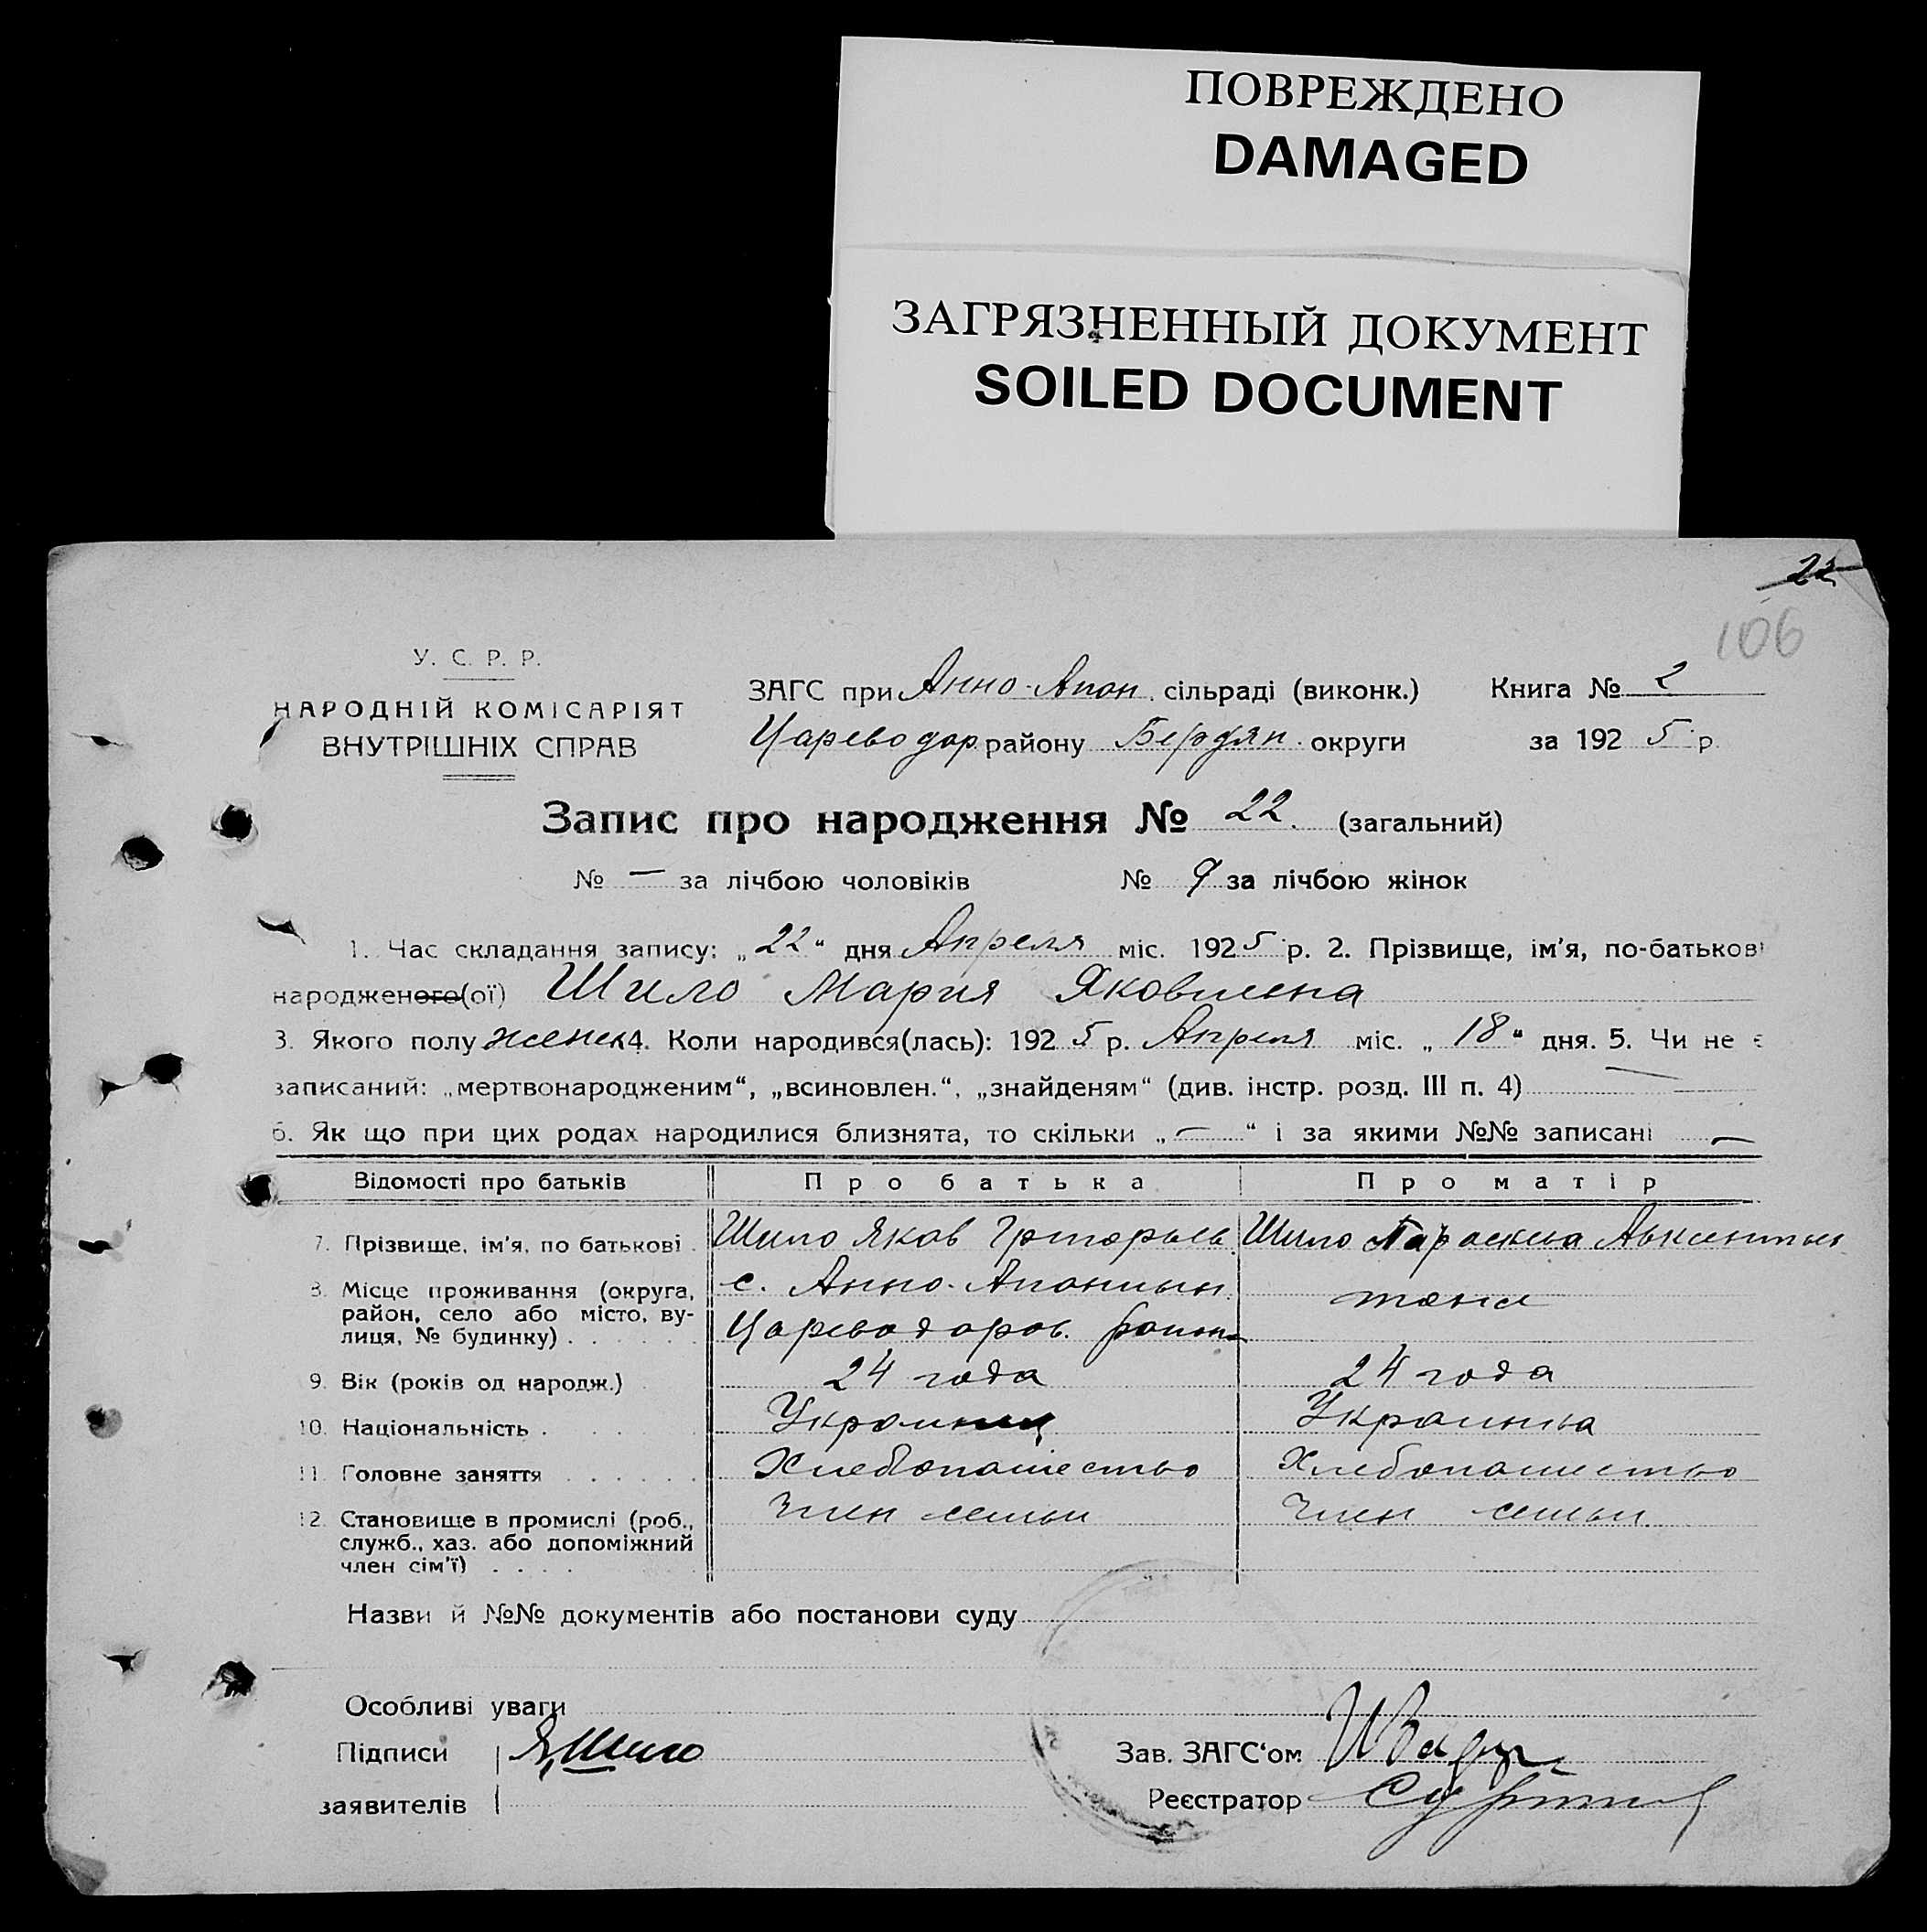 ПОВРЕЖДЕНО
DAMAGED
ЗАГРЯЗНЕННЫЙ ДОКУМЕНТ
SOILED DOCUMENT
22
106
У. С. Р. Р.
НАРОДНІЙ КОМІСАРІЯТ
ВНУТРІШНІХ СПРАВ
ЗАГС при Анно-Апон. сільраді (виконк.) Книга № 2
Цареводар. району Бердян. округи за 1925 р.
Запис про народження № 22. (загальний)
№ — за лічбою чоловіків № 9 за лічбою жінок
1. Час складання запису: „22“ дня Апреля міс. 1925 р. 2. Прізвище, ім'я, по-батькові
народженого(ої) Шило Мария Яковлевна
3. Якого полу женск 4. Коли народився(лась): 1925 р. Апреля міс. „18“ дня. 5. Чи не є
записаний: „мертвонародженим“, „всиновлен.“, „знайденям“ (див. інстр. розд. III п. 4) —
6. Як що при цих родах народилися близнята, то скільки „—“ і за якими №№ записані —
Відомості про батьків Про батька Про матір
7. Прізвище, ім'я, по батькові Шило Яков Григорьев. Шило Параскева Авксентьев
8. Місце проживання (округа, район, село або місто, вулиця, № будинку) с. Анно-Апонлын.
Цареводаров. район тоже
9. Вік (років од народж.) 24 года 24 года
10. Національність Украинец Украинка
11. Головне заняття Хлебопашество Хлебопашество
12. Становище в промислі (роб., служб., хаз. або допоміжний член сім'ї) Член семьи Член семьи
Назви й №№ документів або постанови суду
Особливі уваги
Підписи Я. Шило Зав. ЗАГС'ом
заявителів Реєстратор